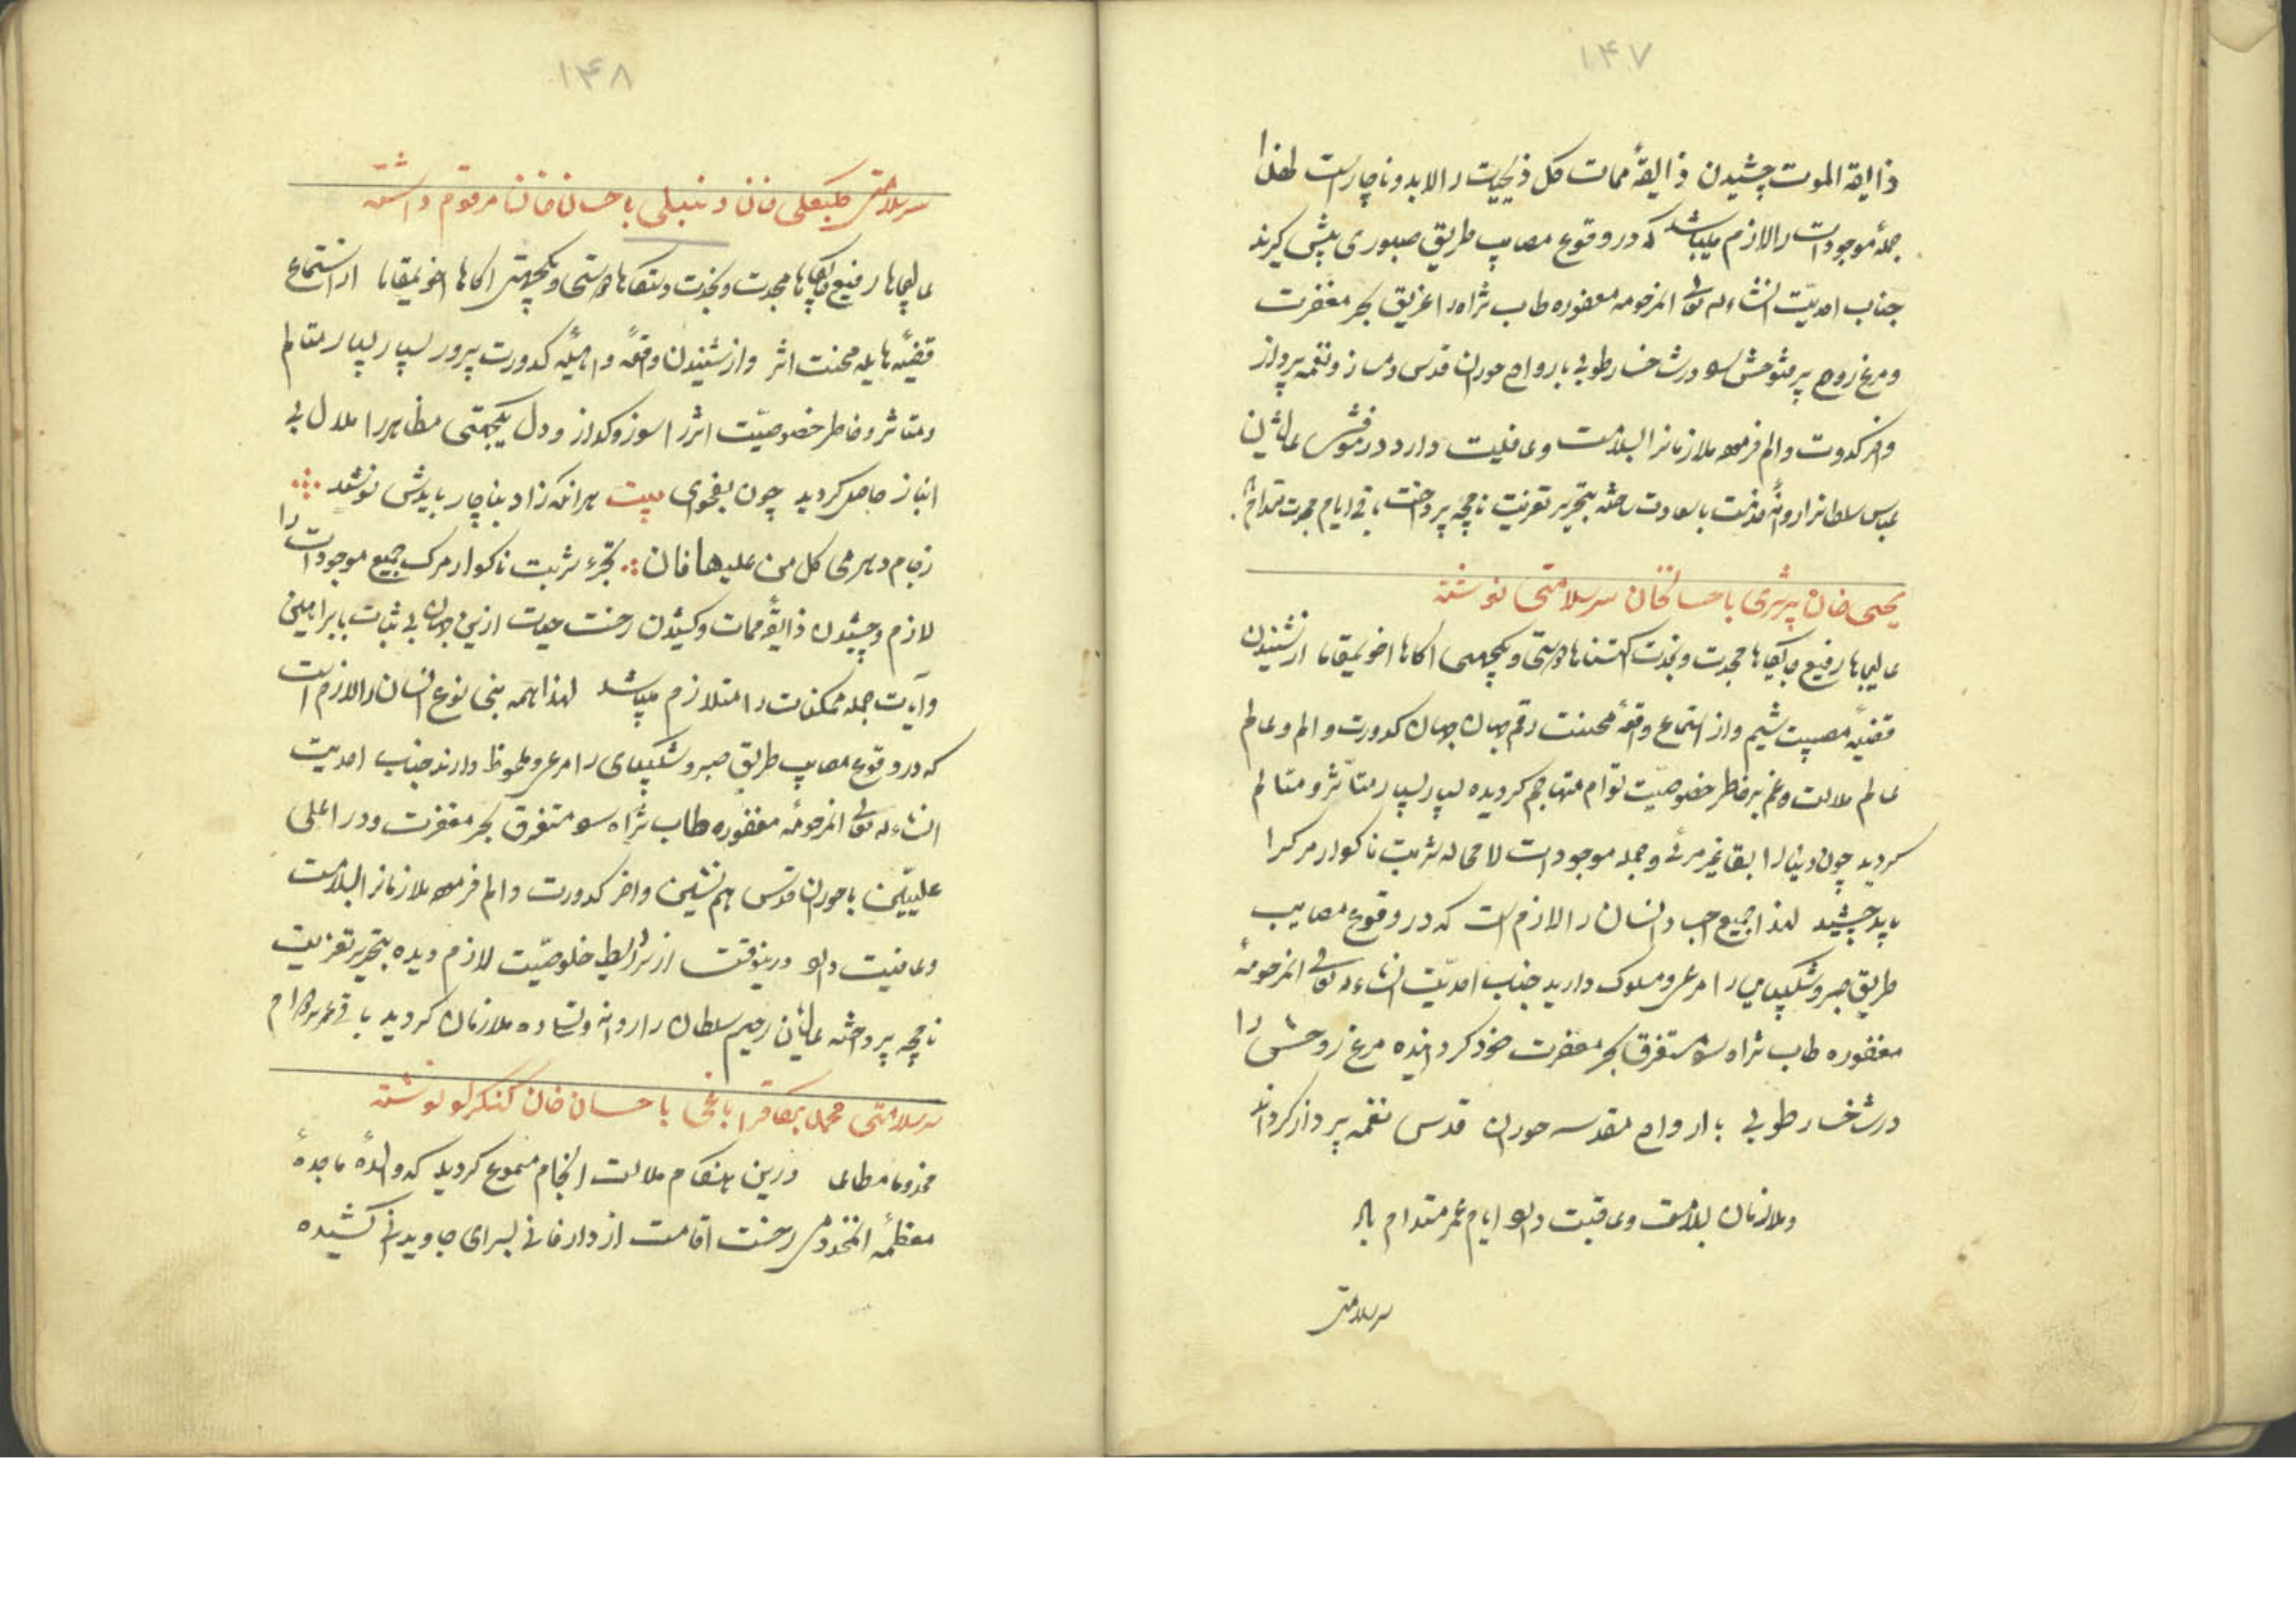 ۱۴۷
ذایقة الموت چشیدن ذایقهٔ ممات کل ذیحیات را لابد و ناچار است لهذا
جملهٔ موجودات را لازم میباشد که در وقوع مصایب طریق صبوری پیش گیرند
جناب احدیّت انشاءله تعالی المرحومه مغفوره طاب ثراه را غریق بحر مغفرت
و مرغ روح در شاخسار طوبی با رواح حوران قدس دمساز و نغمه پرداز
و اخر کدورت و الم فرموده ملازمانرا بسلامت و عافیت دارد عالیشان
عباس سلطانرا روانهٔ خدمت با سعادت ساخته بتحریر تعزیت نامچه پرداخت باقی ایام
یحیی خان با حسانخان سرسلامتی نوشته
عالیجاها رفیع جایگاها مجدت و نجدت دوستی و یکجهتی آگاها اخویمقاما از شنیدن
قضیّهٔ مصیبت شیم و از استماع وقعهٔ محنت رقم جهان جهان کدورت و الم و عالم
عالم ملالت و غم بر خاطر خصوصیّت توام متهاجم گردیده بسیار بسیار متأثر و متالم
گردید چون دنیا را بقا غیر مرئی و جمله موجودات لا محاله شربت ناگوار مرگ را
باید چشید لهذا جمیع انسان را لازم است که در وقوع مصایب
طریق صبر و شکیبایی را مرعی و مسلوک دارید جناب احدیّت انشاءله تعالی المرحومهٔ
مغفوره طاب ثراه مستغرق بحر مغفرت خود گردانیده مرغ روحش را
در شاخسار طوبی با ارواح مقدسه حوران قدس نغمه پرداز گرداند
و ملازمان بسلامت و عافیت ایام عمر مستدام باد
سرسلامتی
۱۴۸
سرسلامتی خان دنبلی با حسانخان مرقوم داشته
عالیجاها رفیع جایگاها مجدت و نجدت دستگاها دوستی و یکجهتی آگاها اخویمقاما از استماع
قضیّه هایله محنت اثر و از شنیدن وقعهٔ کدورت پرور بسیار بسیار متالم
و متاثر و خاطر خصوصیّت اثر را سوز و گداز و دل یکجهتی مظاهر را ملال بی
انباز حاصل گردید چون بفحوای بیت هرانکه زاد بناچار بایدش نوشید
ز جام دهر می کل من علیها فان تجرع شربت ناگوار مرگ جمیع موجودات را
لازم و چشیدن ذایقهٔ ممات و کشیدن رخت حیات ازین جهان بی ثبات
جمله ممکنات را متلازم میباشد لهذا همه بنی نوع انسان را لازم است
که در وقوع مصایب طریق صبر و شکیبای را مرعی و ملحوظ دارند جناب احدیت
انشاءله تعالی المرحومهٔ مغفوره طاب ثراه مستغرق بحر مغفرت و در اعلی
علییّن با حوران قدس هم نشین و اخر کدورت و الم فرموده ملازمانرا بسلامت
و عافیت درینوقت از شرایط خلوصیّت لازم دیده بتحریر تعزیت
نامچه پرداخته عالیشان رحیم سلطان را روانه ملازمان گردید باقی عمر
سرسلامتی با حسان خان کنگرلو نوشته
مخدوما مطاعا درین هنگام ملالت انجام مسموع گردید که والدهٔ ماجدهٔ
معظمهٔ المخدومی رخت اقامت از دار فانی بسرای جاویدانی کشیده